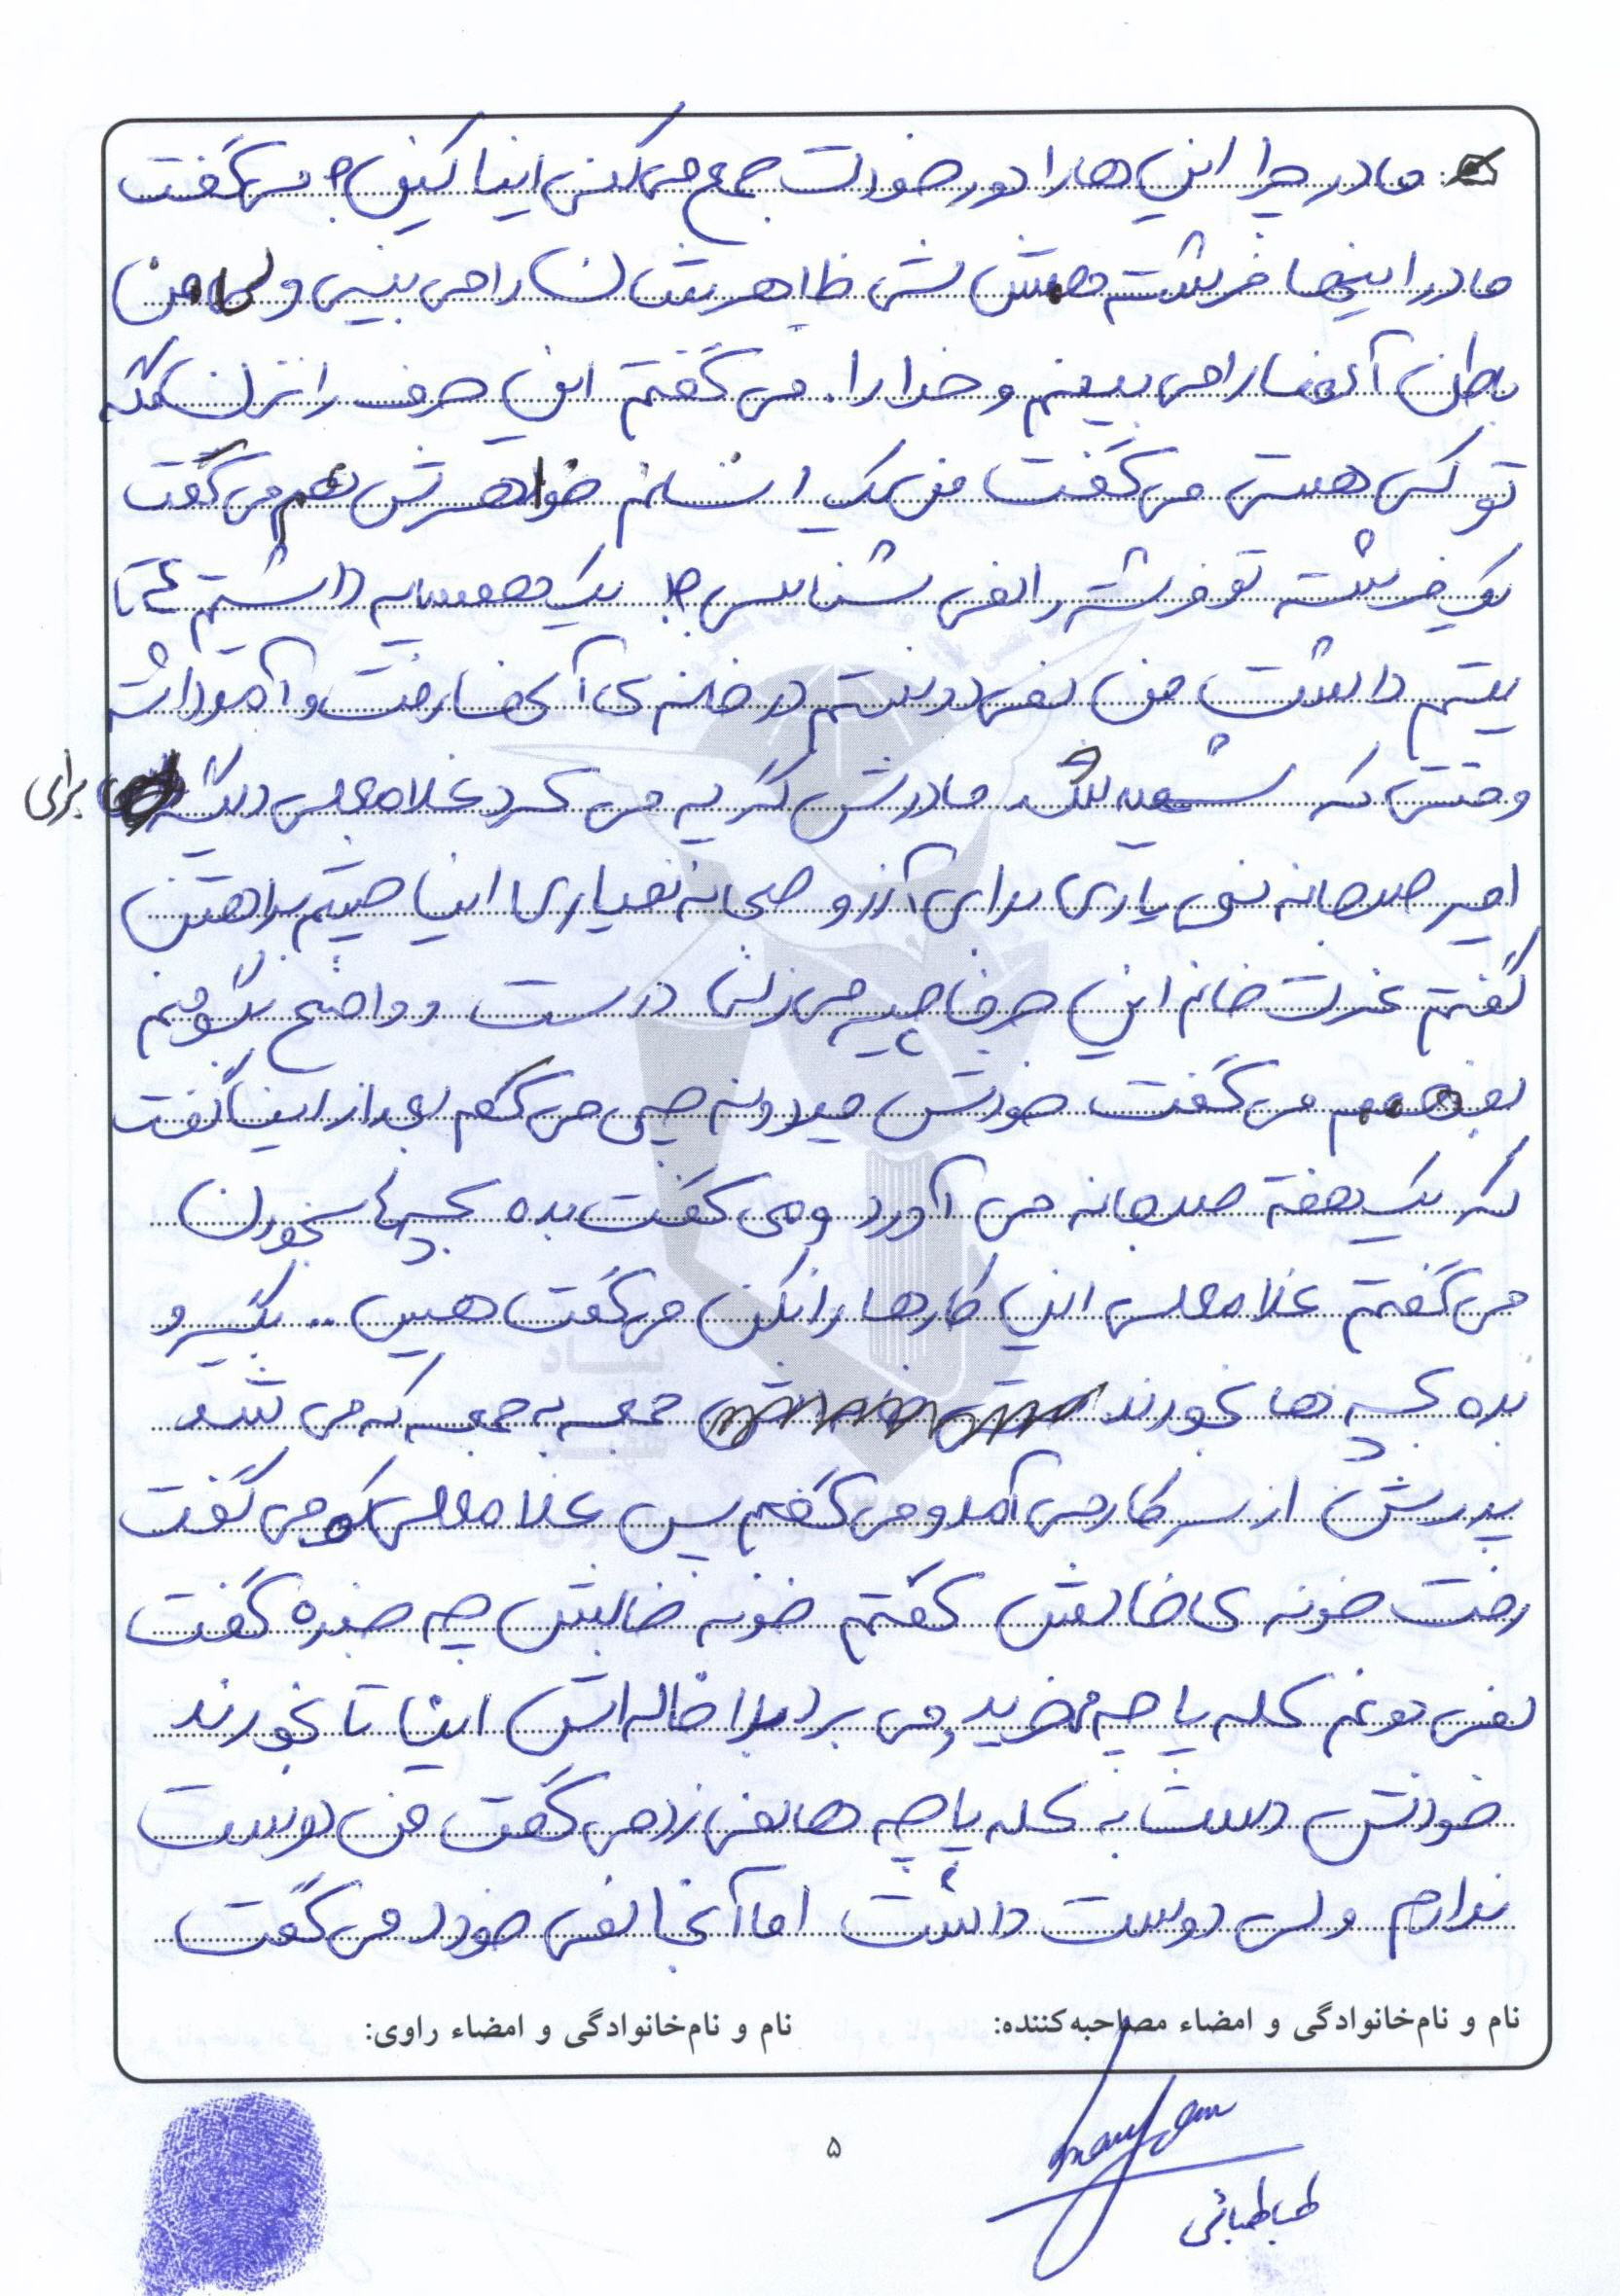 مادر چرا این ها را دور خودت جمع می کنی اینا کین؟ می گفت
مادر اینها فرشته ظاهرشان را می بینی ولی من
باطن آنها را می بینم و خدا را. می گفتم این حرف را نزن مگه
تو کی هستی می گفت من یک انسانم خواهرش هم می گفت
یک فرشته تو فرشته را نمی شناسی؟! یک همسایه داشتیم ۴ تا
یتیم داشت من نمی دونستم در خانه ی آنها رفت و آمد داشته
وقتی که شهید شد مادرش گریه می کرد غلامعلی دیگه برای
امیر صبحانه نمی یاری برای آرزو صبحانه نمیاری اینا چیتم
گفتم عذرت خانم این حرفا چیه می زنی درست و واضح بگو منم
بفهمم می گفت خودش میدونه چی می گم بعد از اینا گفت
که یک هفته صبحانه می آورد و می گفت بده بچه ها بخورن
می گفتم غلامعلی این کارها را نکن می گفت هیس .. بگیر و
بده بچه ها بخورند جمعه به جمعه که می شد
پدرش از سر کار می آمد و می گفتم پس غلامعلی کو می گفت
رفت خونه ی خالش گفتم خونه خالش چه خبره گفت
نمی دونم کله پاچه می خرید و می برد برا خاله اش اینا تا بخورند
خودش دست به کله پاچه ها نمی زد می گفت من دوست
ندارم ولی دوست داشت اما آنجا نمی خورد می گفت
نام و نام‌خانوادگی و امضاء مصاحبه‌کننده:
نام و نام‌خانوادگی و امضاء راوی:
۵
طباطبائی